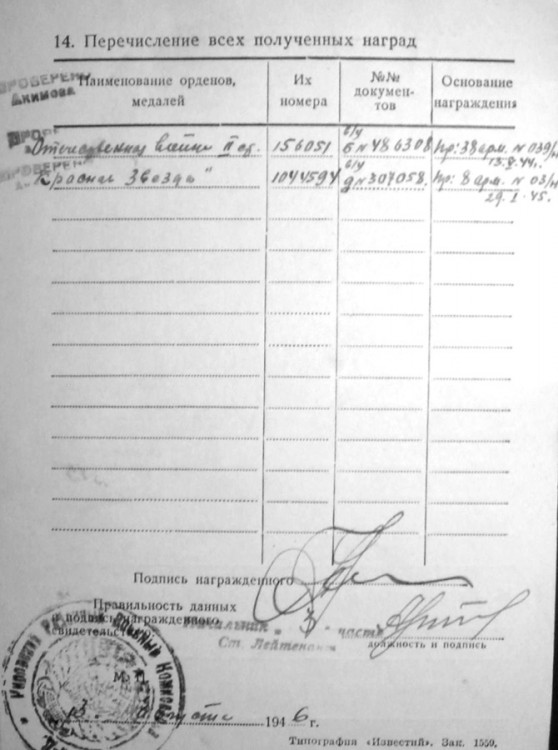 14. Перечисление всех полученных наград
ПРОВЕРЕНО
АКИМОВА
Наименование орденов,
медалей
Их
номера
№№
докумен-
тов
Основание
награждения
Отечественная война II ст. 156051 б/у Б № 486308 Пр: 38 арм. № 039/н
13.X.44г.
ПРОВЕРЕНО
"Красная Звезда" 1044594 б/у Д № 307058. Пр: 8 арм. № 03/н
29.I.45.
Подпись награжденного
Правильность данных
и подпись награжденного
свидетельствую
Начальник 3 часть
Ст. Лейтенант
должность и подпись
М. П.
Военный
августа 1946 г.
Типография «Известий». Зак. 1559.